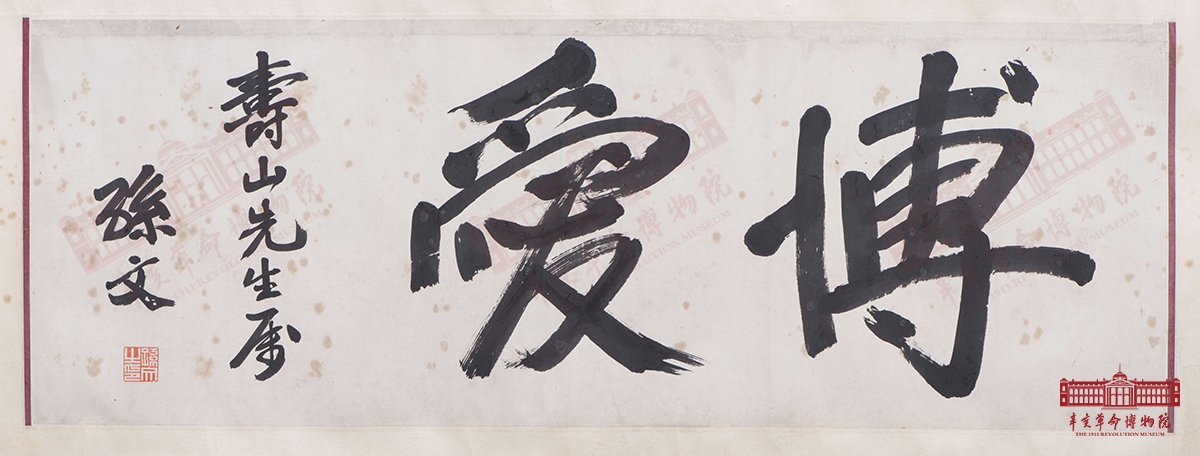 博愛
壽山先生属
孫文
孫文之印
辛亥革命博物院
THE 1911 REVOLUTION MUSEUM